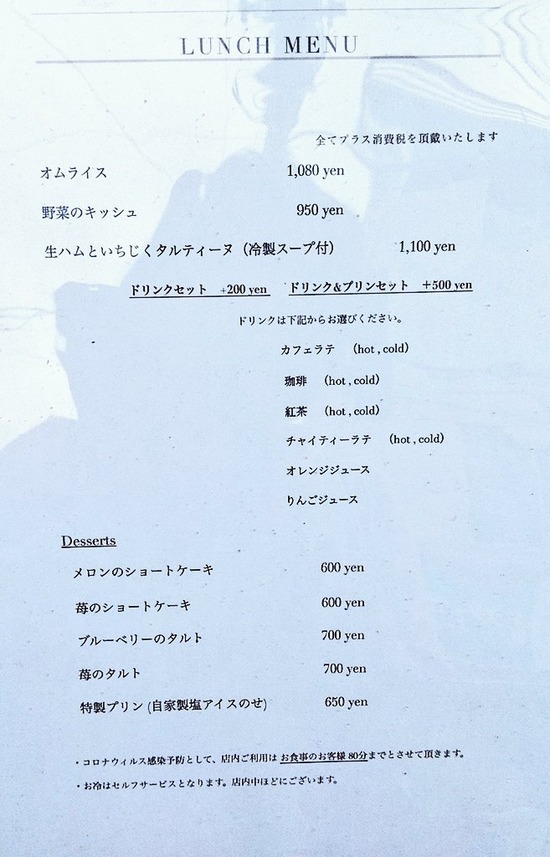 LUNCH MENU
全てプラス消費税を頂戴いたします
オムライス 1,080 yen
野菜のキッシュ 950 yen
生ハムといちじくタルティーヌ（冷製スープ付） 1,100 yen
ドリンクセット +200 yen ドリンク&プリンセット ＋500 yen
ドリンクは下記からお選びください。
カフェラテ （hot , cold）
珈琲 （hot , cold）
紅茶 （hot , cold）
チャイティーラテ （hot , cold）
オレンジジュース
りんごジュース
Desserts
メロンのショートケーキ 600 yen
苺のショートケーキ 600 yen
ブルーベリーのタルト 700 yen
苺のタルト 700 yen
特製プリン (自家製塩アイスのせ) 650 yen
・コロナウィルス感染予防として、店内ご利用は お食事のお客様 80分までとさせて頂きます。
・お冷はセルフサービスとなります。店内中ほどにございます。